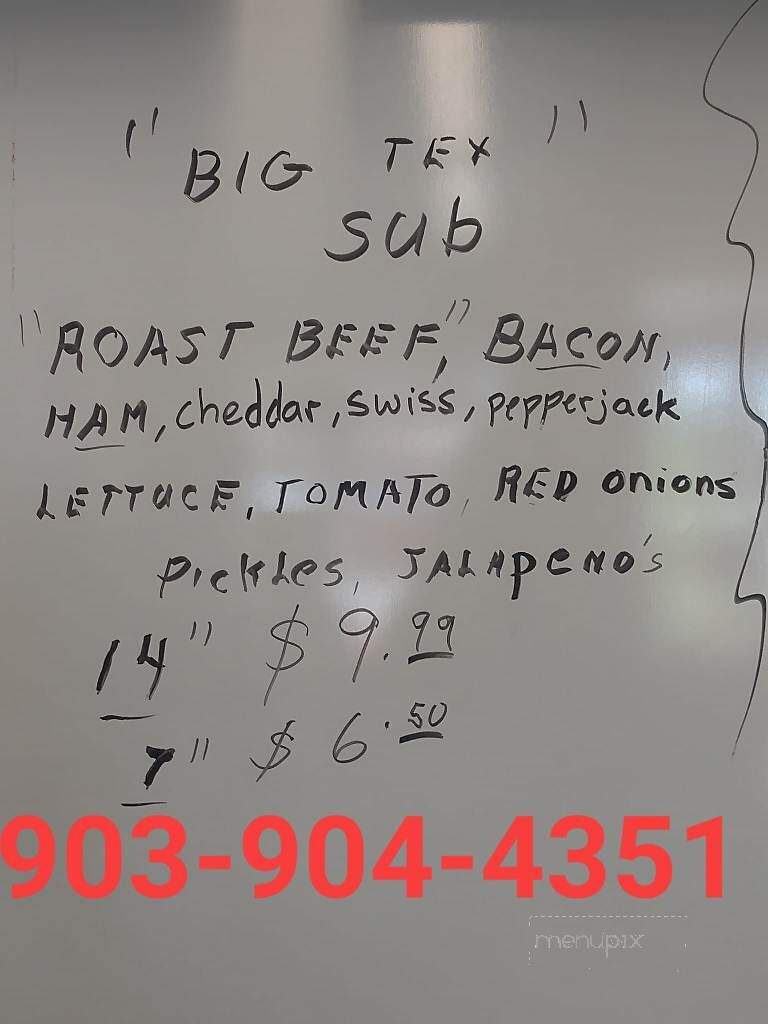 "BIG TEX"
sub
"ROAST BEEF," BACON,
HAM, cheddar, swiss, pepperjack
LETTUCE, TOMATO, RED onions
PICKLES, JALAPENO's
14" $9.99
7" $6.50
903-904-4351
menupix